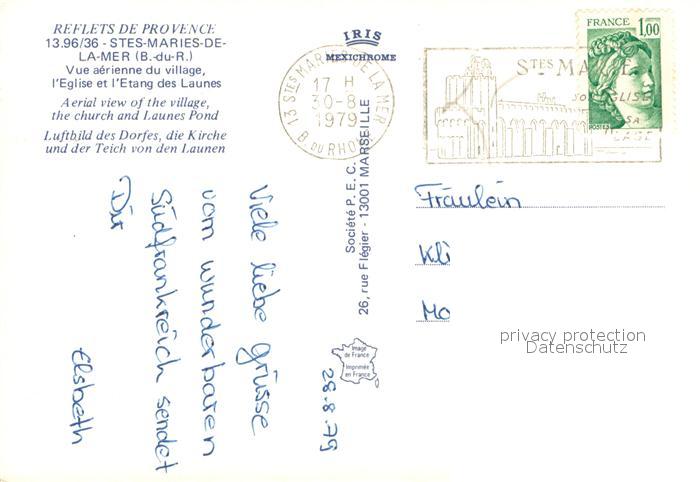 REFLETS DE PROVENCE
13.96/36 - STES-MARIES-DE-
LA-MER (B.-du-R.)
Vue aérienne du village,
l'Eglise et l'Etang des Launes
Aerial view of the village,
the church and Launes Pond
Luftbild des Dorfes, die Kirche
und der Teich von den Launen
IRIS
MEXICHROME
13 STES MARIES DE LA MER
17 H
30-8
1979
B. DU RHONE
STES MA
SON EGLISE
SA
PLAGE
FRANCE 1,00
POSTES
Société P.E.C.
26, rue Flégier - 13001 MARSEILLE
Image
de France
Imprimée
en France
28.8.79
Viele liebe Grüsse
vom wunderbaren
Südfrankreich sendet
Dir
Elsbeth
Fräulein
Kli
Mo
privacy protection
Datenschutz